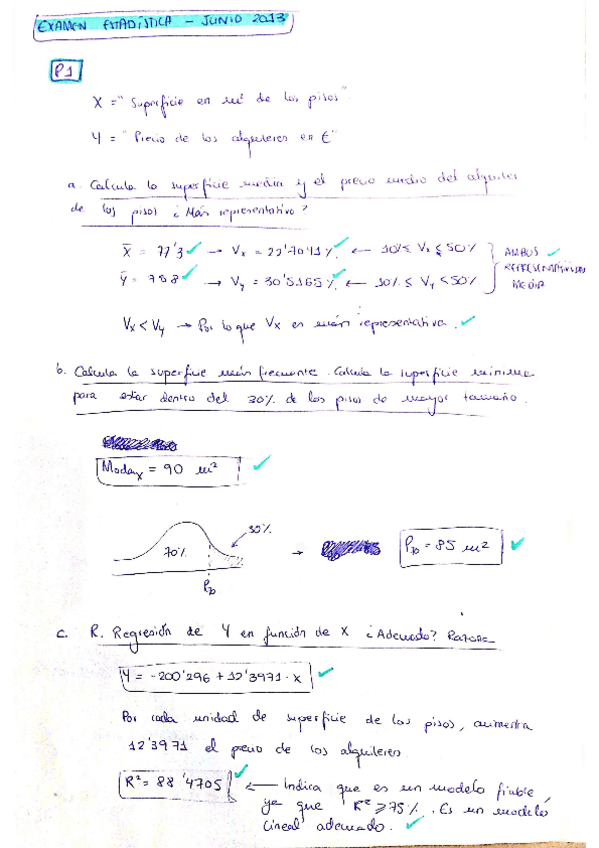 EXAMEN ESTADÍSTICA - JUNIO 2013
P1
X = "Superficie en m² de los pisos"
Y = "Precio de los alquileres en €"
a. Calcula la superficie media y el precio medio del alquiler
de los pisos ¿Más representativo?
X̄ = 77'3 ✓ → Vx = 22'7041% ✓ ← 10% ≤ Vx ≤ 50%
Ȳ = 758 ✓ → Vy = 30'5165% ✓ ← 10% ≤ Vy ≤ 50%
AMBOS ✓
MEDIA
Vx < Vy → Por lo que Vx es más representativa. ✓
b. Calcula la superficie más frecuente. Calcula la superficie mínima
para estar dentro del 30% de los pisos de mayor tamaño.
Modax = 90 m² ✓
70% 30% → P70 = 85 m² ✓
P70
c. R. Regresión de Y en función de X ¿Adecuado? Razona
Y = -200'296 + 12'3971 · x ✓
Por cada unidad de superficie de los pisos, aumentra
12'3971 el precio de los alquileres.
R² = 88'4705 ✓ ← Indica que es un modelo fiable,
ya que R² ≥ 75%. Es un modelo
lineal adecuado. ✓